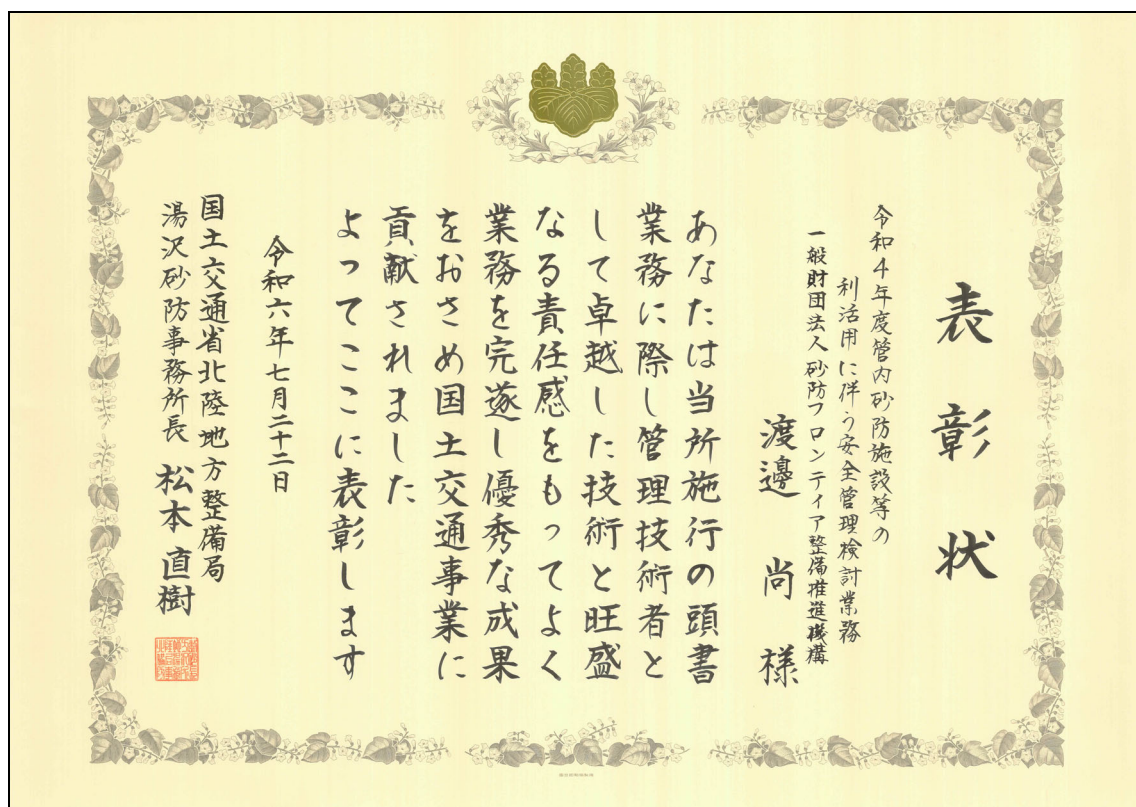 表彰状
令和4年度管内砂防施設等の
利活用に伴う安全管理検討業務
一般財団法人砂防フロンティア整備推進機構
渡邊 尚 様
あなたは当所施行の頭書
業務に際し管理技術者と
して卓越した技術と旺盛
なる責任感をもってよく
業務を完遂し優秀な成果
をおさめ国土交通事業に
貢献されました
よってここに表彰します
令和六年七月二十二日
国土交通省北陸地方整備局
湯沢砂防事務所長 松本直樹